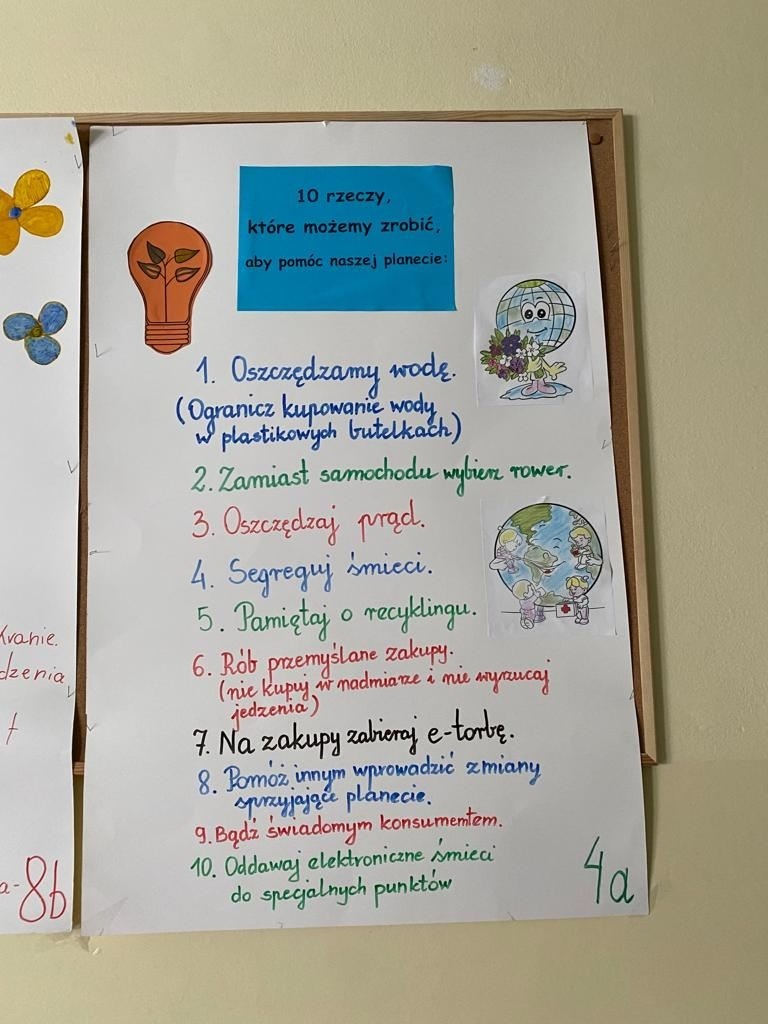 10 rzeczy,
które możemy zrobić,
aby pomóc naszej planecie:
1. Oszczędzamy wodę.
(Ogranicz kupowanie wody
w plastikowych butelkach)
2. Zamiast samochodu wybierz rower.
3. Oszczędzaj prąd.
4. Segreguj śmieci.
5. Pamiętaj o recyklingu.
6. Rób przemyślane zakupy.
(nie kupuj w nadmiarze i nie wyrzucaj
jedzenia)
7. Na zakupy zabieraj e-torbę.
8. Pomóż innym wprowadzić zmiany
sprzyjające planecie.
9. Bądź świadomym konsumentem.
10. Oddawaj elektroniczne śmieci
do specjalnych punktów
4a
8b